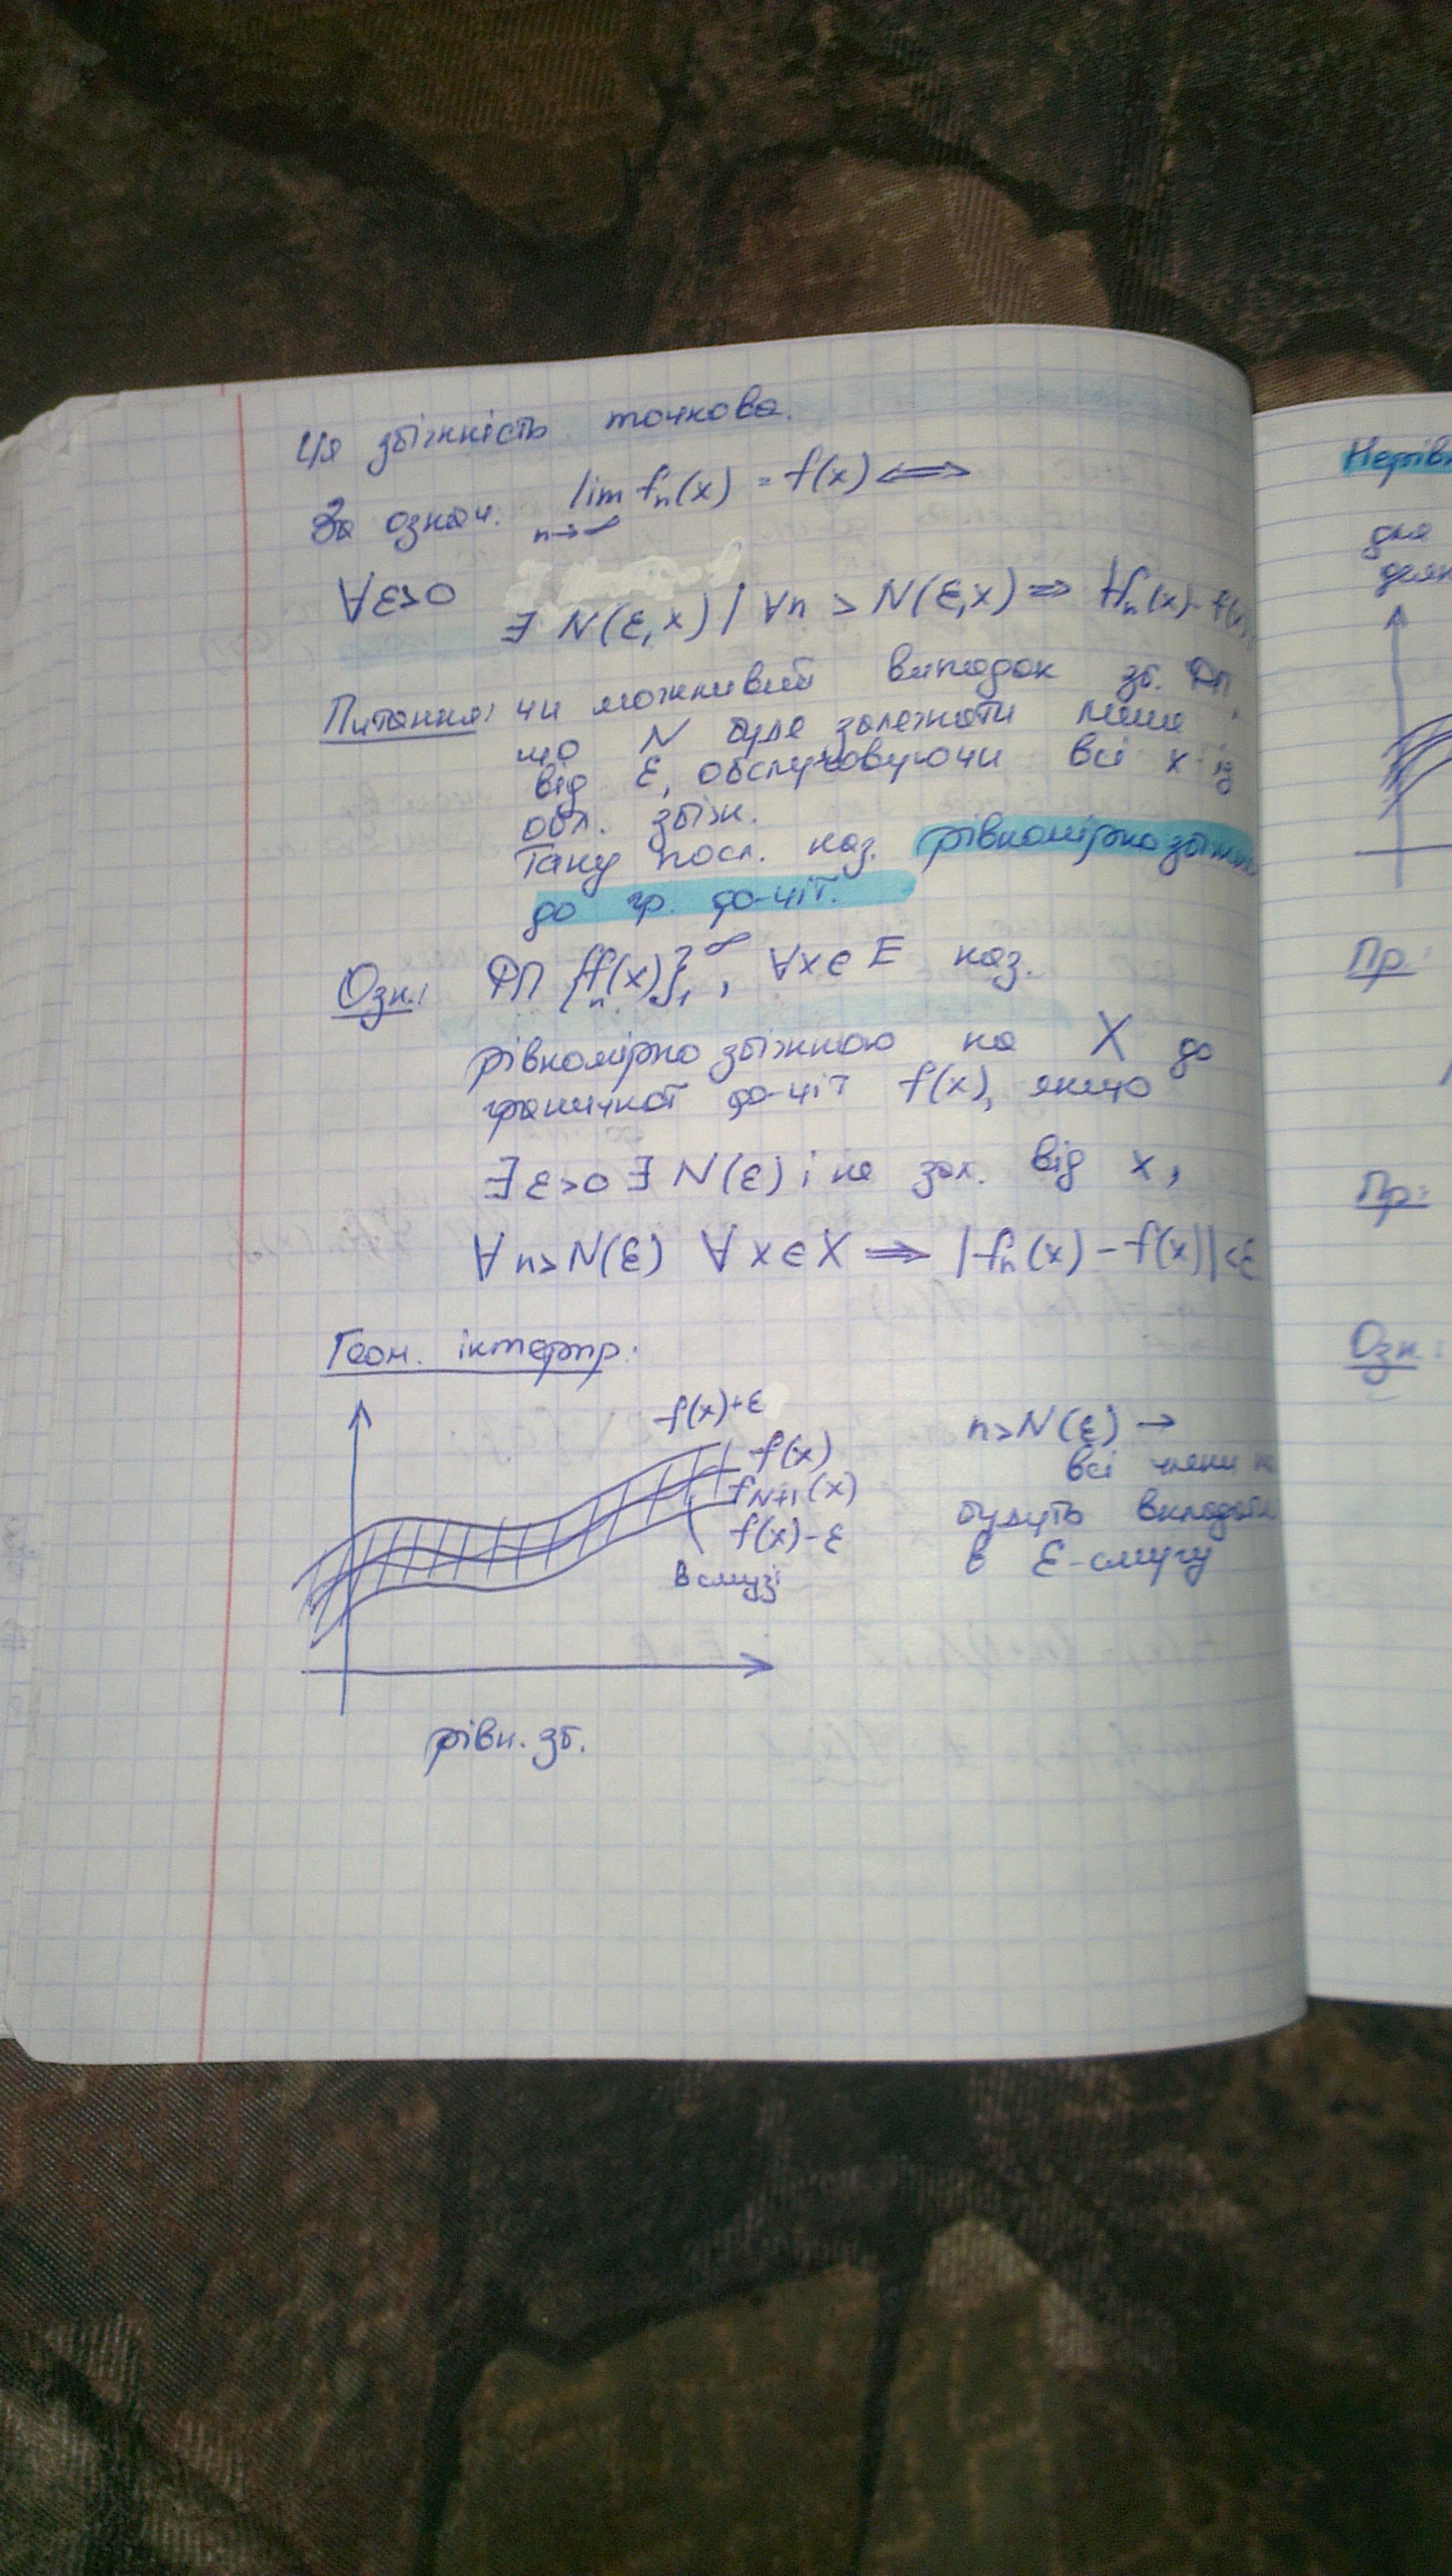 Ця збіжність точкова.
За означ. lim fₙ(x) = f(x) ⟺
n→∞
∀ε>0 ∃ N(ε,x) | ∀n > N(ε,x) ⇒ |fₙ(x) - f(x)
Питання: чи можливий випадок зб. ФП,
що N буде залежати лише
від ε, обслуговуючи всі x із
обл. збіж.
Таку посл. наз. рівномірно збіжн
до гр. ф-ції.
Озн.: ФП {fₙ(x)}₁^∞, ∀x∈E наз.
рівномірно збіжною на X до
граничної ф-ції f(x), якщо
∃ε>0 ∃ N(ε) і не зал. від x,
∀n>N(ε) ∀x∈X ⟹ |fₙ(x) - f(x)|<ε
Геом. інтерпр.
f(x)+ε
f(x)
f_{N+1}(x)
f(x)-ε
в смузі
n>N(ε) →
всі члени
будуть випадати
в ε-смугу
рівн. зб.
Нерівн
для
Пр.:
Пр:
Озн.: